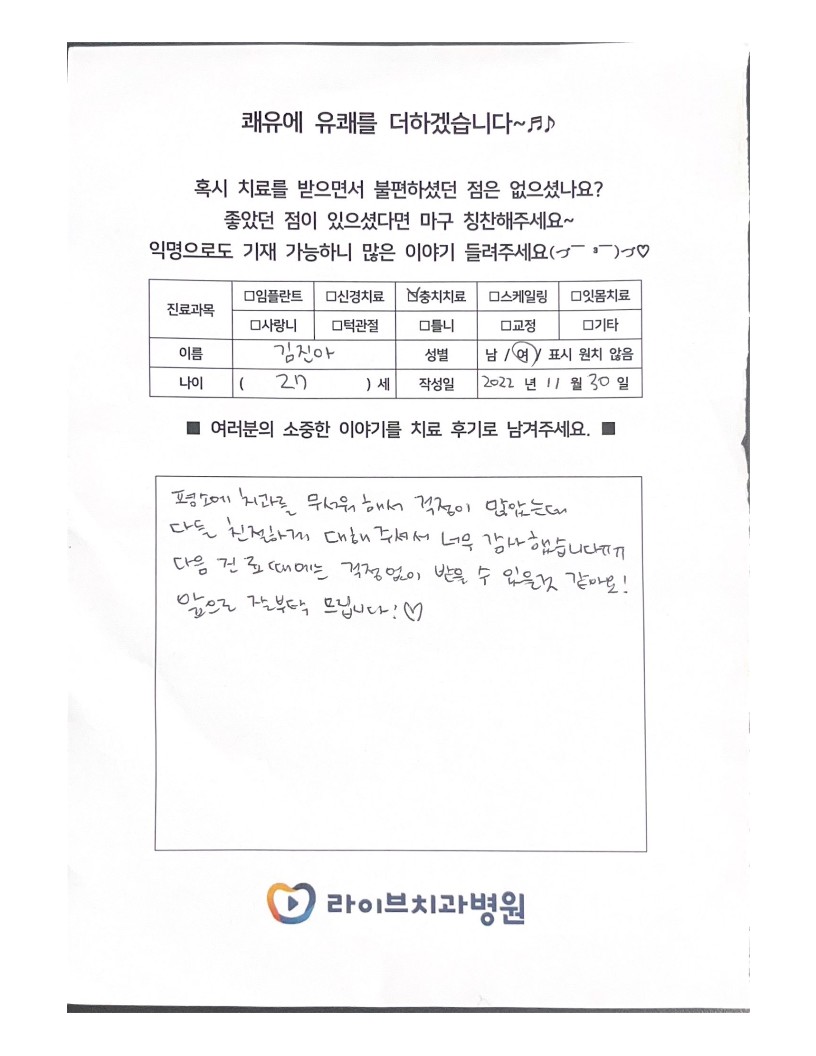 쾌유에 유쾌를 더하겠습니다~♬♪
혹시 치료를 받으면서 불편하셨던 점은 없으셨나요?
좋았던 점이 있으셨다면 마구 칭찬해주세요~
익명으로도 기재 가능하니 많은 이야기 들려주세요(っ￣ ³￣)っ♡
진료과목 □임플란트 □신경치료 ☑충치치료 □스케일링 □잇몸치료
□사랑니 □턱관절 □틀니 □교정 □기타
이름 김진아 성별 남 / 여 / 표시 원치 않음
나이 ( 27 ) 세 작성일 2022 년 11 월 30 일
■ 여러분의 소중한 이야기를 치료 후기로 남겨주세요. ■
평소에 치과를 무서워 해서 걱정이 많았는데
다들 친절하게 대해 주셔서 너무 감사했습니다ㅠㅠ
다음 진료때에는 걱정없이 받을 수 있을것 같아요!
앞으로 잘부탁 드립니다!♡
라이브치과병원